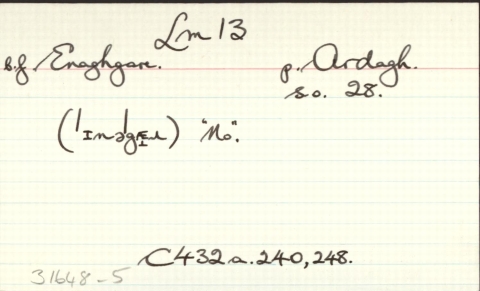 Lm 13
b.f. Enaghgare. p. Ardagh.
s.o. 28.
"No".
C432a.240,248.
31648-5